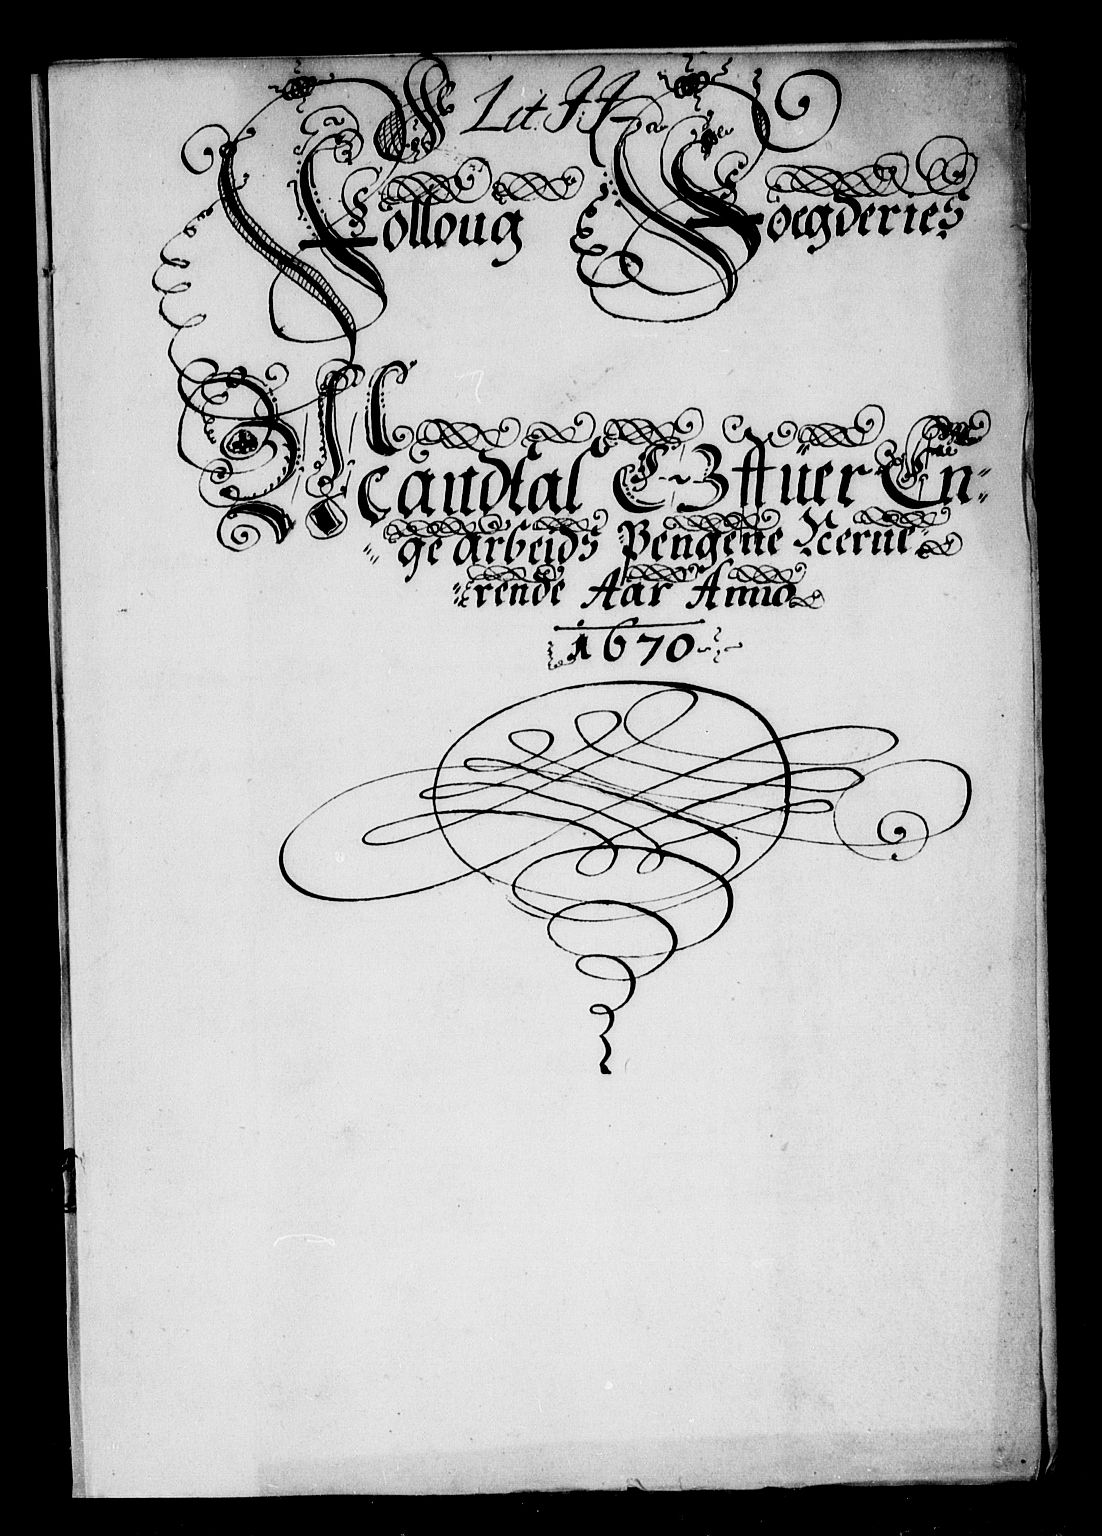 Lit. H
Folloug Foegderies
Mandtal Offuer En-
ge arbeids Pengene Nerue-
rende Aar Anno
1670